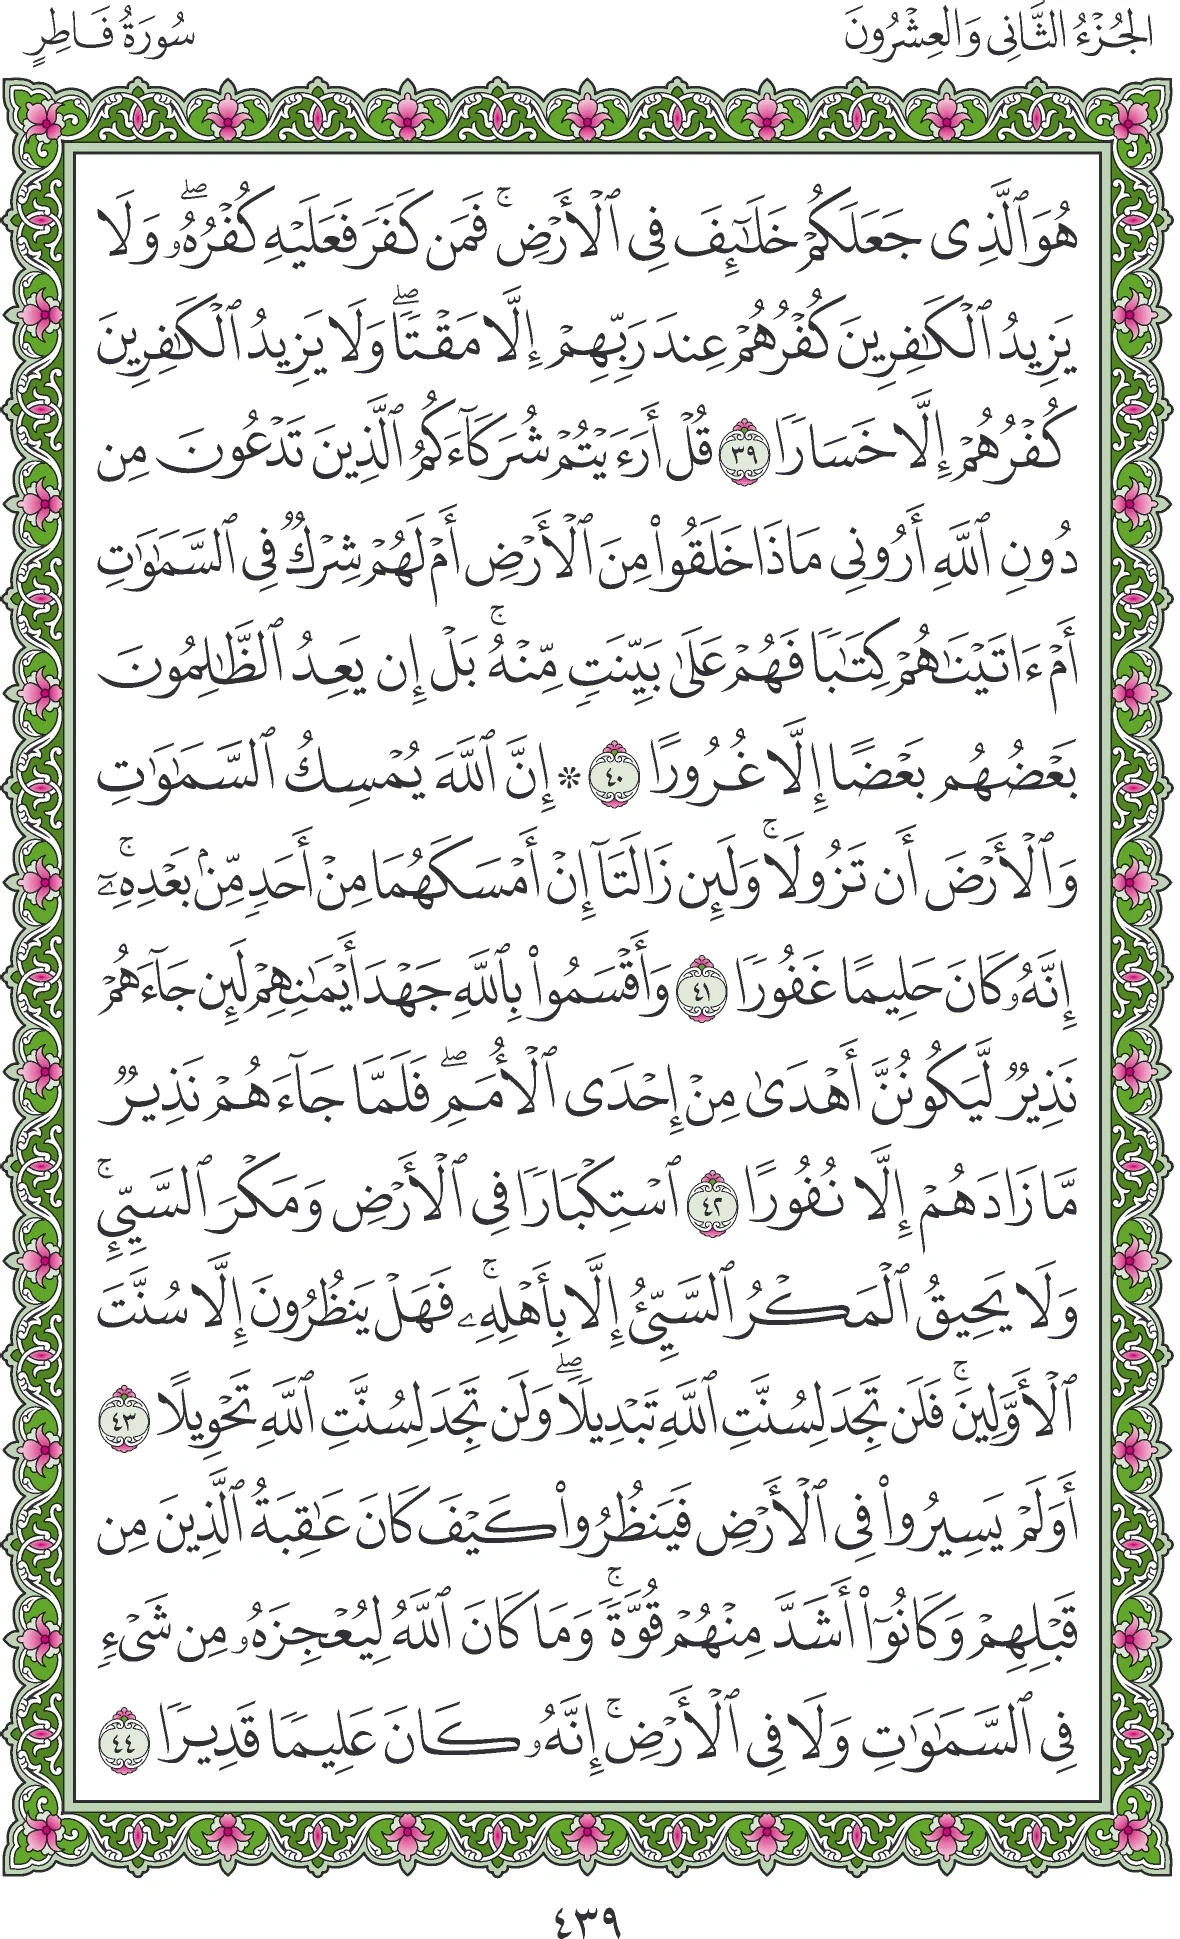 الجُزْءُ الثَّانِي وَالعِشْرُونَ
سُورَةُ فَاطِرٍ
هُوَ ٱلَّذِى جَعَلَكُمْ خَلَـٰٓئِفَ فِى ٱلْأَرْضِۚ فَمَن كَفَرَ فَعَلَيْهِ كُفْرُهُۥۖ وَلَا
يَزِيدُ ٱلْكَـٰفِرِينَ كُفْرُهُمْ عِندَ رَبِّهِمْ إِلَّا مَقْتًاۖ وَلَا يَزِيدُ ٱلْكَـٰفِرِينَ
كُفْرُهُمْ إِلَّا خَسَارًا ٣٩ قُلْ أَرَءَيْتُمْ شُرَكَآءَكُمُ ٱلَّذِينَ تَدْعُونَ مِن
دُونِ ٱللَّهِ أَرُونِى مَاذَا خَلَقُوا۟ مِنَ ٱلْأَرْضِ أَمْ لَهُمْ شِرْكٌ فِى ٱلسَّمَـٰوَٰتِ
أَمْ ءَاتَيْنَـٰهُمْ كِتَـٰبًا فَهُمْ عَلَىٰ بَيِّنَتٍ مِّنْهُۚ بَلْ إِن يَعِدُ ٱلظَّـٰلِمُونَ
بَعْضُهُم بَعْضًا إِلَّا غُرُورًا ٤٠ ۞ إِنَّ ٱللَّهَ يُمْسِكُ ٱلسَّمَـٰوَٰتِ
وَٱلْأَرْضَ أَن تَزُولَاۚ وَلَئِن زَالَتَآ إِنْ أَمْسَكَهُمَا مِنْ أَحَدٍ مِّنۢ بَعْدِهِۦٓۚ
إِنَّهُۥ كَانَ حَلِيمًا غَفُورًا ٤١ وَأَقْسَمُوا۟ بِٱللَّهِ جَهْدَ أَيْمَـٰنِهِمْ لَئِن جَآءَهُمْ
نَذِيرٌ لَّيَكُونُنَّ أَهْدَىٰ مِنْ إِحْدَى ٱلْأُمَمِۖ فَلَمَّا جَآءَهُمْ نَذِيرٌ
مَّا زَادَهُمْ إِلَّا نُفُورًا ٤٢ ٱسْتِكْبَارًا فِى ٱلْأَرْضِ وَمَكْرَ ٱلسَّيِّئِۚ
وَلَا يَحِيقُ ٱلْمَكْرُ ٱلسَّيِّئُ إِلَّا بِأَهْلِهِۦۚ فَهَلْ يَنظُرُونَ إِلَّا سُنَّتَ
ٱلْأَوَّلِينَۚ فَلَن تَجِدَ لِسُنَّتِ ٱللَّهِ تَبْدِيلًاۖ وَلَن تَجِدَ لِسُنَّتِ ٱللَّهِ تَحْوِيلًا ٤٣
أَوَلَمْ يَسِيرُوا۟ فِى ٱلْأَرْضِ فَيَنظُرُوا۟ كَيْفَ كَانَ عَـٰقِبَةُ ٱلَّذِينَ مِن
قَبْلِهِمْ وَكَانُوٓا۟ أَشَدَّ مِنْهُمْ قُوَّةًۚ وَمَا كَانَ ٱللَّهُ لِيُعْجِزَهُۥ مِن شَىْءٍ
فِى ٱلسَّمَـٰوَٰتِ وَلَا فِى ٱلْأَرْضِۚ إِنَّهُۥ كَانَ عَلِيمًا قَدِيرًا ٤٤
٤٣٩